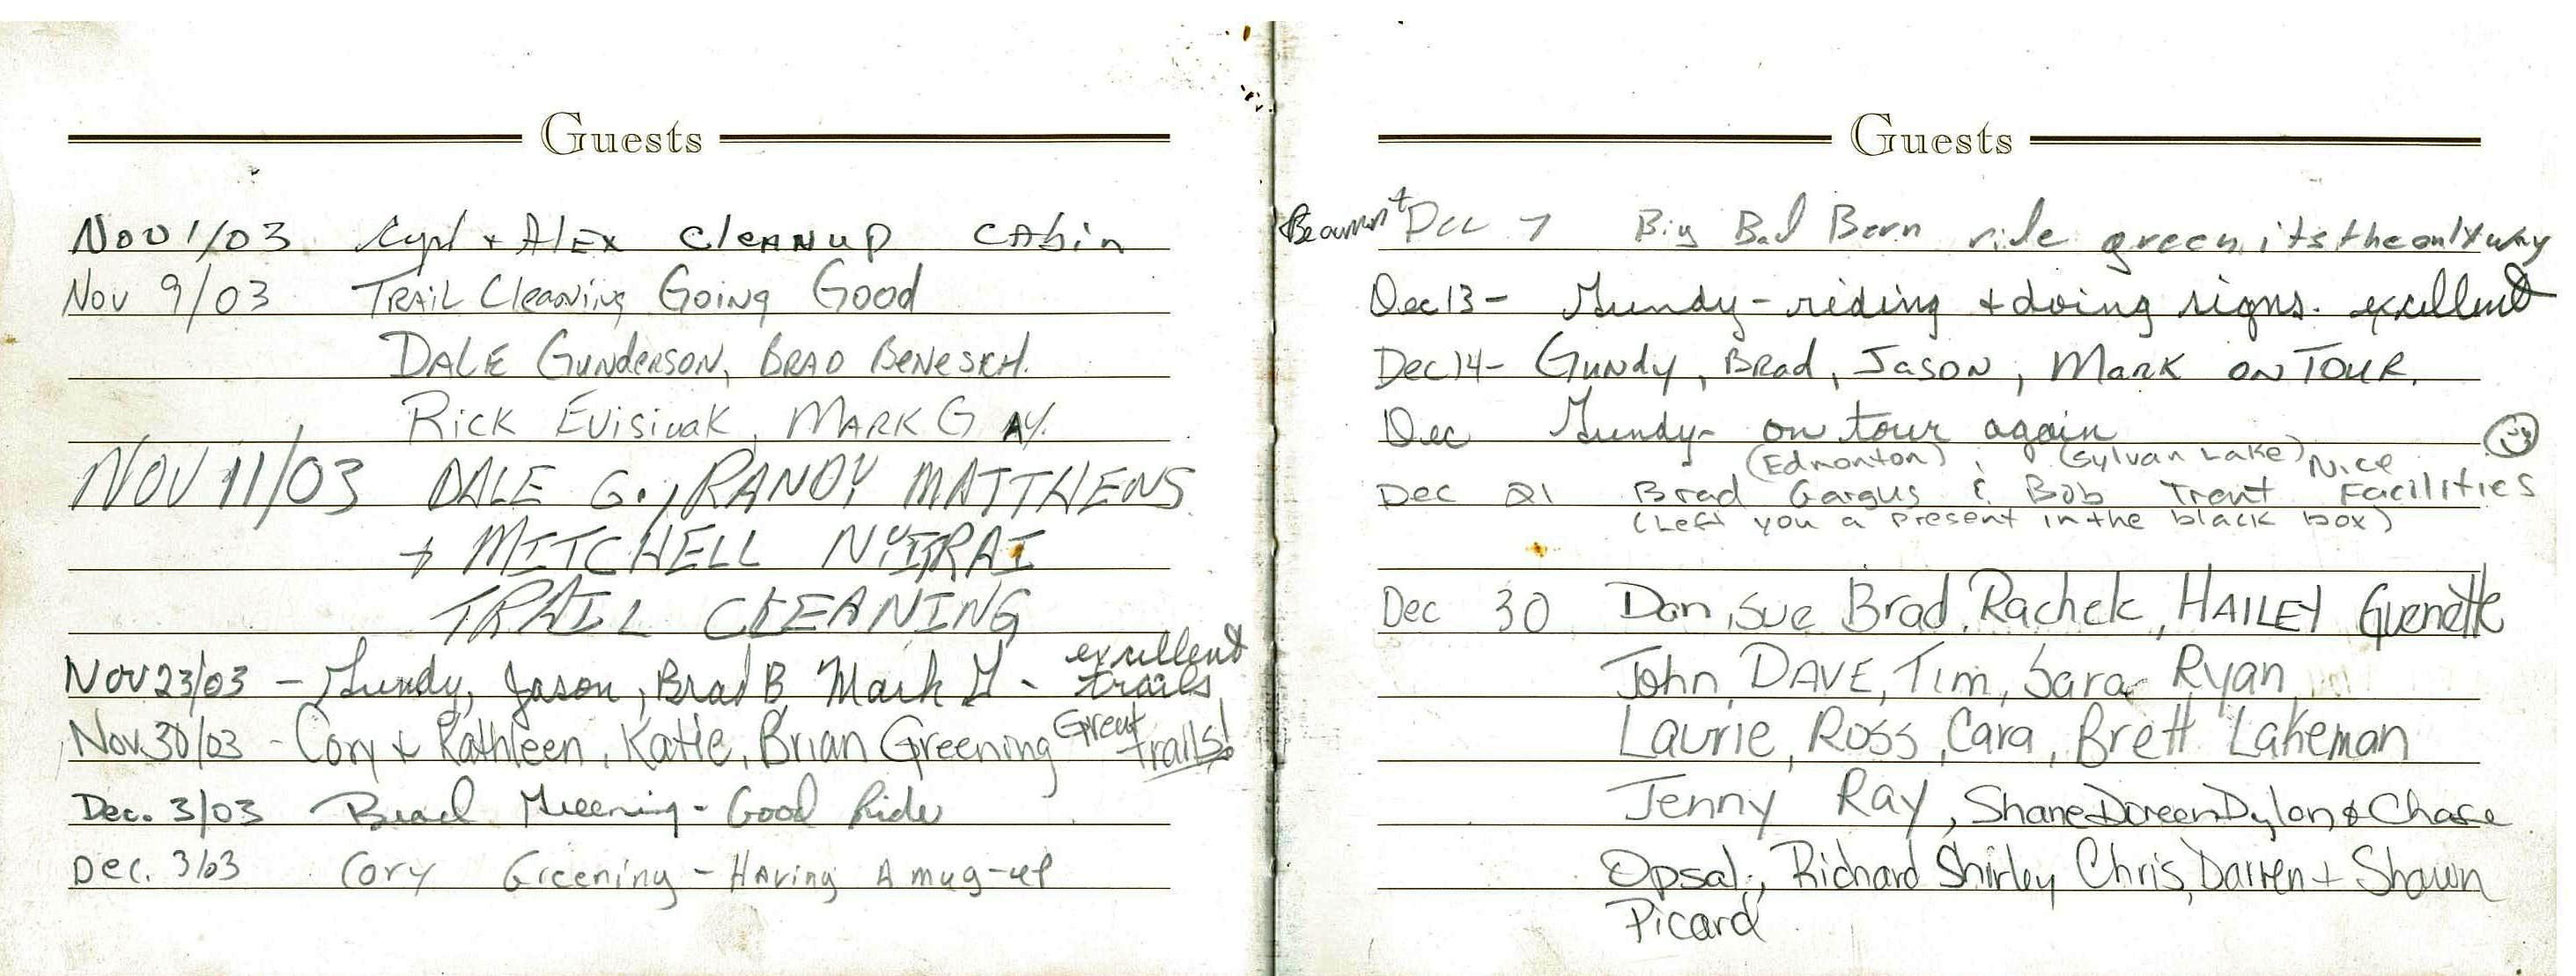 Guests
Nov 1/03 Cyril + Alex Cleanup Cabin
Nov 9/03 Trail Cleaning Going Good
Dale Gunderson, Brad Benesch.
Rick Evisiuak, Mark Gay.
NOV 11/03 DALE G., RANDY MATTHEWS
+ MITCHELL NYITRAI
TRAIL CLEANING
Nov 23/03 - Gundy, Jason, Brad B, Mark G - excellent trails
Nov 30/03 - Cory & Kathleen, Katie, Brian Greening Great trails!
Dec. 3/03 Brad Greening - Good Ride
Dec. 3/03 Cory Greening - Having A mug-up
Guests
Beaumont Dec 7 Big Bad Bern ride green its the only way
Dec 13 - Gundy - riding & doing signs. excellent
Dec 14 - Gundy, Brad, Jason, Mark on TOUR.
Dec Gundy - on tour again
(Edmonton) (Sylvan Lake) Nice
Dec 21 Brad Gargus & Bob Trent Facilities
(Left you a present in the black box)
Dec 30 Dan, Sue Brad, Rachele, HAILEY Guenette
John, DAVE, Tim, Sara Ryan
Laurie, Ross, Cara, Brett Lakeman
Jenny Ray, Shane Doreen Dylan & Chase
Opsal, Richard Shirley Chris, Darren + Shawn
Picard